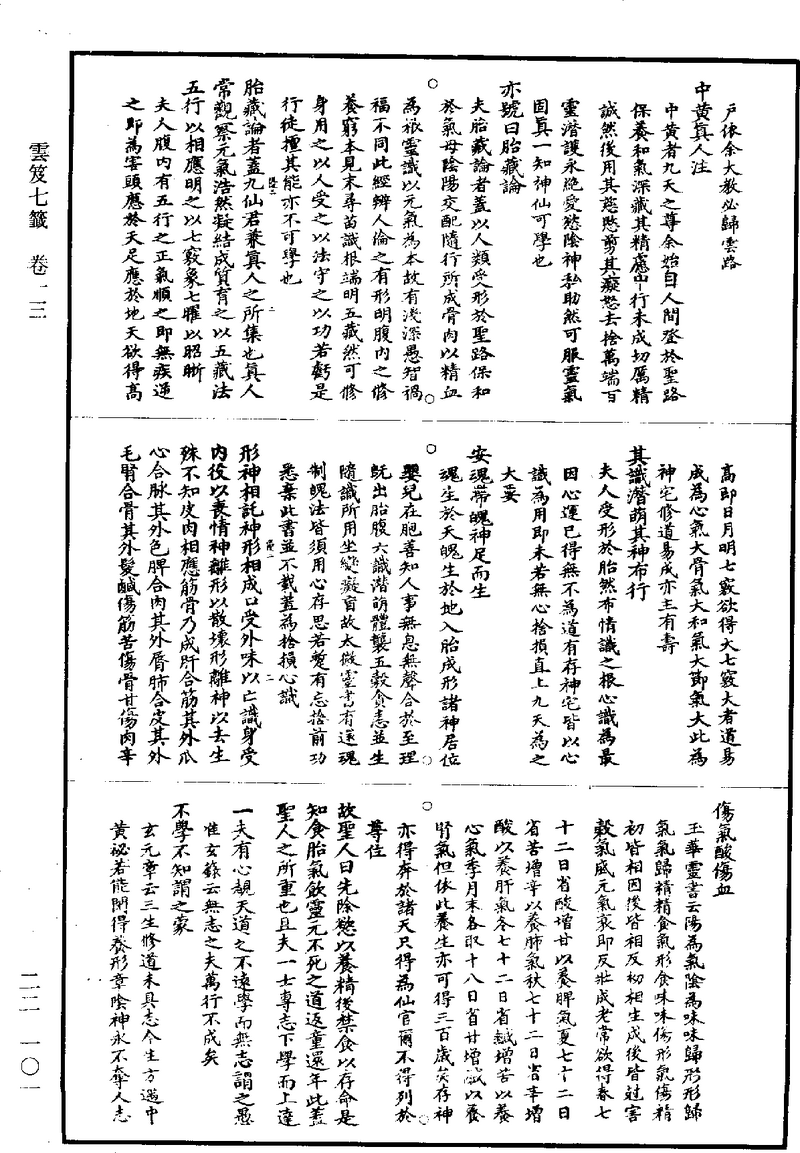 戶依余大教必歸雲路
中黃真人注
中黃者九天之尊余始自人間登於聖路
保養和氣深藏其精慮由行未成切厲精
誠然後用其慈愍剪其癡慾去捨萬端百
靈潛護永絕愛慾陰神私助然可服靈氣
固真一知神仙可學也
亦號曰胎藏論
夫胎藏論者蓋以人類受形於聖路保和
於氣母陰陽交配隨行所成骨肉以精血
為根靈識以元氣為本故有淺深愚智禍
福不同此經辨人倫之有形明腹內之修
養窮本見末尋苗識根端明五藏然可修
身用之以人受之以法守之以功若虧是
行徒擅其能亦不可學也
胎藏論者蓋九仙君兼真人之所集也真人
常觀察元氣浩然凝結成質育之以五藏法
五行以相應明之以七竅象七曜以昭晰
夫人腹內有五行之正氣順之即無疾逆
之即為害頭應於天足應於地天欲得高
高即日月明七竅欲得大七竅大者道易
成為心氣大骨氣大和氣大節氣大此為
神宅修道易成亦主有壽
其識潛萌其神布行
夫人受形於胎然布情識之根心識為最
因心運已得無不為道有存神宅皆以心
識為用即未若無心捨損直上九天為之
大妄
安魂帶魄神足而生
魂生於天魄生於地入胎成形諸神居位
嬰兒在胞善知人事無息無聲合於至理
既出胎腹六識潛萌體襲五穀食恚並生
隨識所用坐變癡盲故太微靈書有還魂
制魄法皆須用心存思若蹔有忘捨前功
悉棄此書並不載蓋為捨損心識
形神相託神形相成口受外味以亡識身受
內役以喪情神離形以散壞形離神以去生
殊不知皮肉相應筋骨乃成肝合筋其外爪
心合脉其外色脾合肉其外脣肺合皮其外
毛腎合骨其外髮鹹傷筋苦傷骨甘傷肉辛
傷氣酸傷血
玉華靈書云陽為氣陰為味味歸形形歸
氣氣歸精精食氣形食味味傷形氣傷精
初皆相因後皆相反初相生成後皆過害
穀氣盛元氣衰即反壯成老常欲得春七
十二日省酸增甘以養脾氣夏七十二日
省苦增辛以養肺氣秋七十二日省辛增
酸以養肝氣冬七十二日省鹹增苦以養
心氣季月末各取十八日省甘增鹹以養
腎氣但依此養生亦可得三百歲矣存神
亦得奔於諸天只得為仙官爾不得列於
尊位
故聖人曰先除慾以養精後禁食以存命是
知食胎氣飲靈元不死之道返童還年此蓋
聖人之所重也且夫一士專志下學而上達
一夫有心覩天道之不遠學而無志謂之愚
准玄錄云無志之夫萬行不成矣
不學不知謂之蒙
玄元章云三生修道未具志今生方遇中
黃祕若能開得養形章陰神永不奪人志
雲笈七籤 卷一三
二二 一〇一